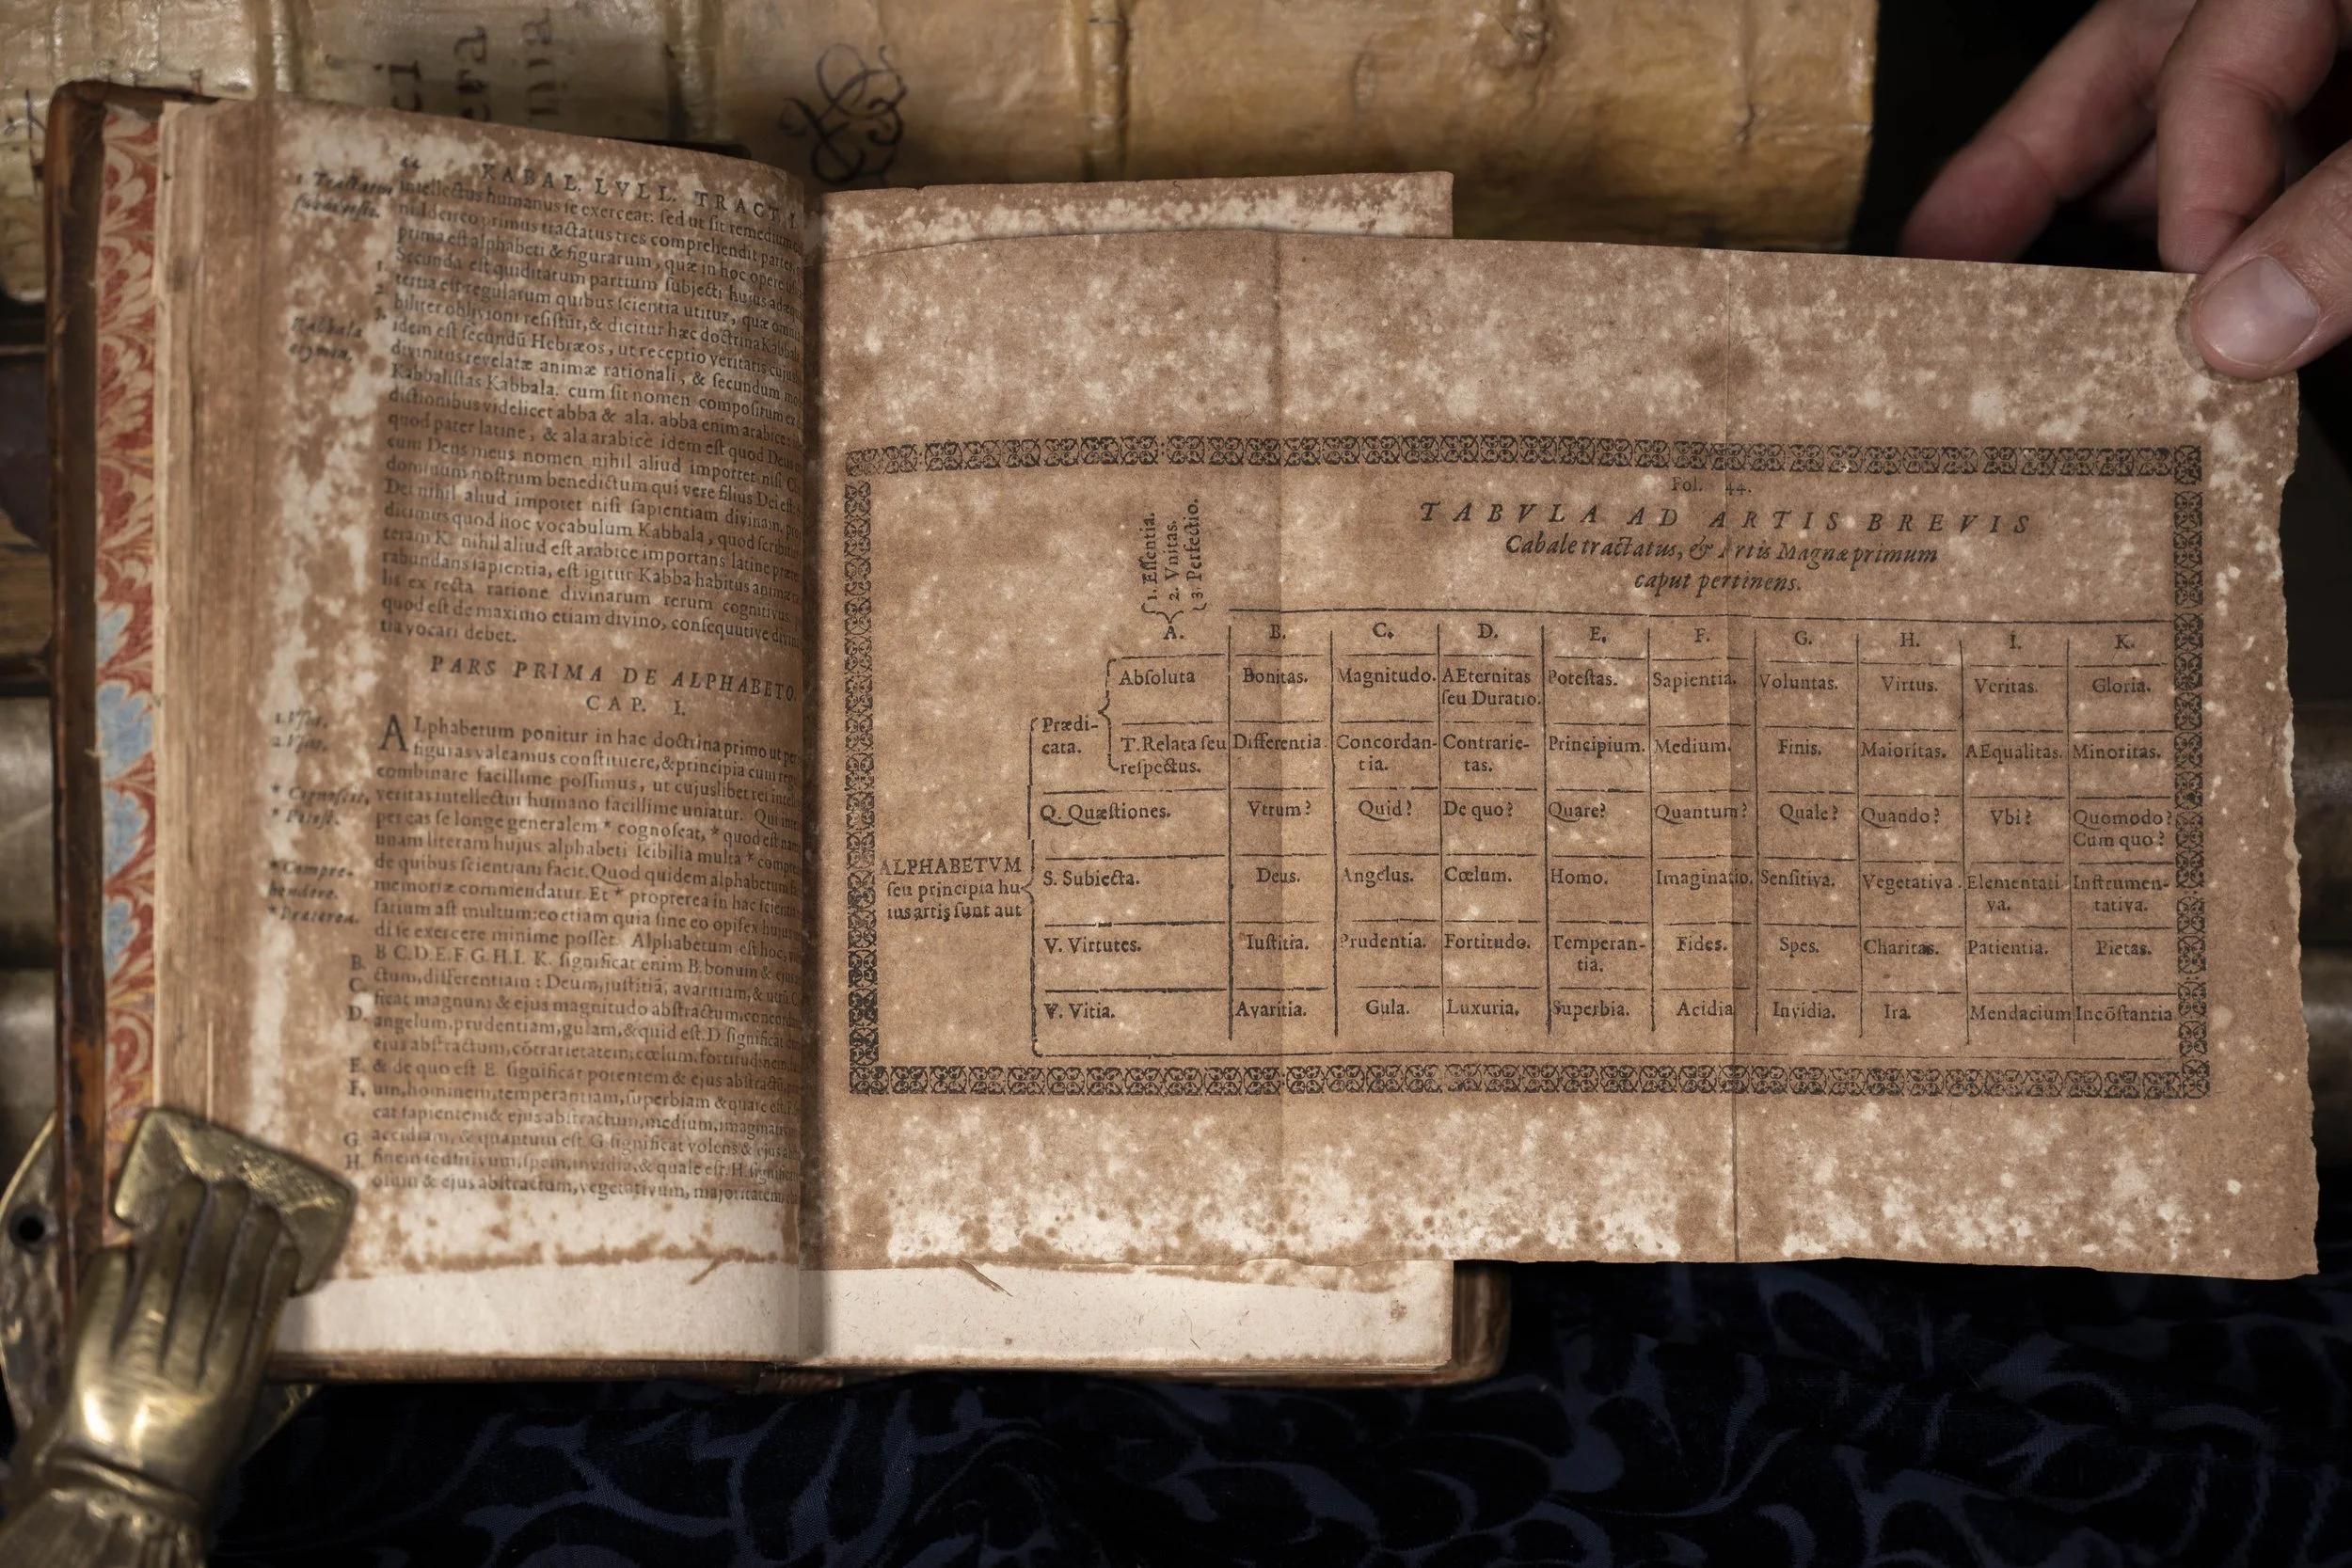 44 KABAL. LVLL. TRACT. I.
intellectus humanus se exerceat: sed ut sit remedium
ni Idcirco primus tractatus tres comprehendit partes,
prima est alphabeti & figurarum, quæ in hoc opere
Secunda est quiditatum partium subjecti hujus
tertia est regularum quibus scientia utitur, quæ
biliter oblivioni resistūt, & dicitur hæc doctrina
idem est secundū Hebræos, ut receptio veritatis
divinitus revelatæ animæ rationali, & secundum
Kabbalistas Kabbala. cum sit nomen compositum ex
dictionibus videlicet abba & ala. abba enim arabice
quod pater latine, & ala arabice idem est quod Deus
cum Deus meus nomen nihil aliud importet nisi
dominum nostrum benedictum qui vere filius Dei est:
Dei nihil aliud impotet nisi sapientiam divinam.
dicimus quod hoc vocabulum Kabbala, quod
teram K. nihil aliud est arabice importans latine
rabundans sapientia, est igitur Kabba habitus
lis ex recta ratione divinarum rerum cognitivus.
quod est de maximo etiam divino, consequutive
tia vocari debet.
PARS PRIMA DE ALPHABETO.
CAP. I.
ALphabetum ponitur in hac doctrina primo ut
figuras valeamus constituere, & principia cum
combinare facillime possimus, ut cujuslibet rei
veritas intellectui humano facillime uniatur. Qui
per eas se longe generalem * cognoscat, * quod est
unam literam hujus alphabeti scibilia multa *
de quibus scientiam facit. Quod quidem alphabetum
memoriæ commendatur. Et * propterea in hac
sarium ast multum: eo etiam quia sine eo opifex
di se exercere minime posset. Alphabetum est hoc,
B. B C. D. E. F. G. H. I. K. significat enim B. bonum &
C. ctum, differentiam: Deum, justitiā, avaritiam, &
D. ficat magnum & ejus magnitudo abstractum,
angelum, prudentiam, gulam, & quid est. D significat
ejus abstractum, cōtrarietatem, cœlum,
E. & de quo est E significat potentem & ejus
F. um, hominem, temperantiam, superbiam & quare est.
cat sapientem & ejus abstractum, medium,
G. accidiam, & quantum est G significat volens &
H. finem sensitivum, spem, invidia, & quale est. H.
osum & ejus abstractum, vegetativum, majoritatem,
Fol. 44.
TABVLA AD ARTIS BREVIS
Cabale tractatus, & Artis Magnæ primum
caput pertinens.
1. Essentia.
2. Vnitas.
3. Perfectio.
A. B. C. D. E. F. G. H. I. K.
Prædi-
cata.
Absoluta Bonitas. Magnitudo. AEternitas Potestas. Sapientia. Voluntas. Virtus. Veritas. Gloria.
seu Duratio.
T. Relata seu Differentia. Concordan- Contrarie- Principium. Medium. Finis. Maioritas. AEqualitas. Minoritas.
respectus. tia. tas.
Q. Quæstiones. Vtrum? Quid? De quo? Quare? Quantum? Quale? Quando? Vbi? Quomodo?
Cum quo?
ALPHABETVM
seu principia hu-
ius artis sunt aut
S. Subiecta. Deus. Angelus. Cœlum. Homo. Imaginatio. Sensitiva. Vegetativa. Elementati Instrumen-
va. tativa.
V. Virtutes. Iustitia. Prudentia. Fortitudo. Temperan- Fides. Spes. Charitas. Patientia. Pietas.
tia.
V. Vitia. Avaritia. Gula. Luxuria. Superbia. Acidia Invidia. Ira. Mendacium Incōstantia